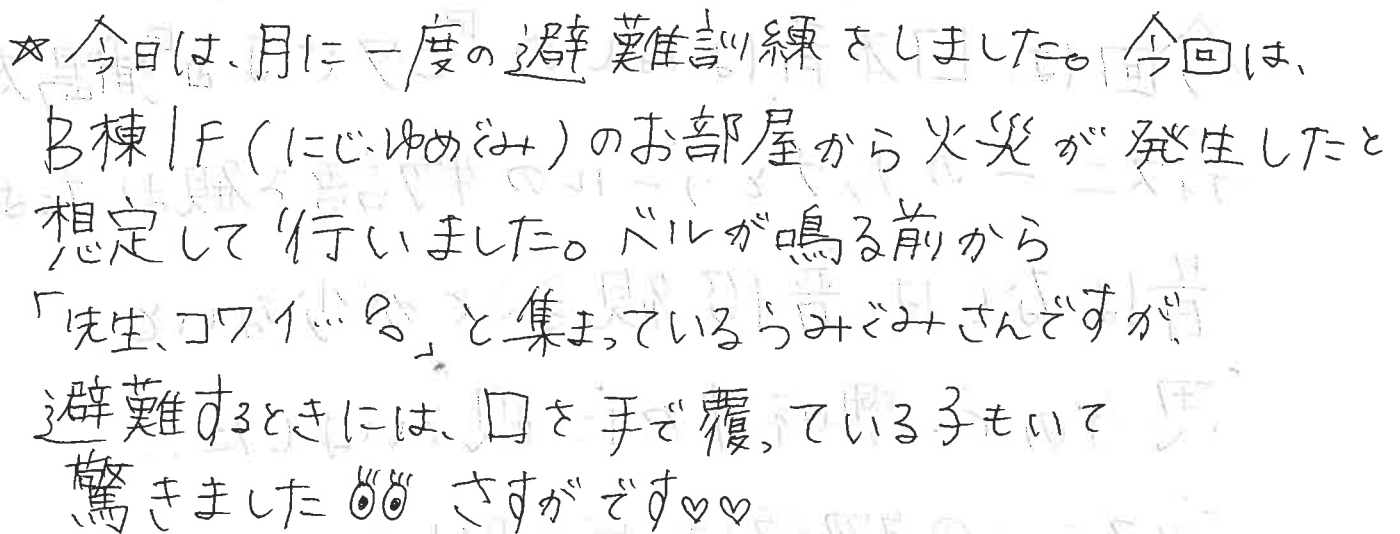 ☆今日は、月に一度の避難訓練をしました。今回は、
B棟1F(にじ・ゆめぐみ)のお部屋から火災が発生したと
想定して行いました。ベルが鳴る前から
「先生、コワイ…」と集まっているうみぐみさんですが、
避難するときには、口を手で覆っている子もいて
驚きました さすがです♡♡